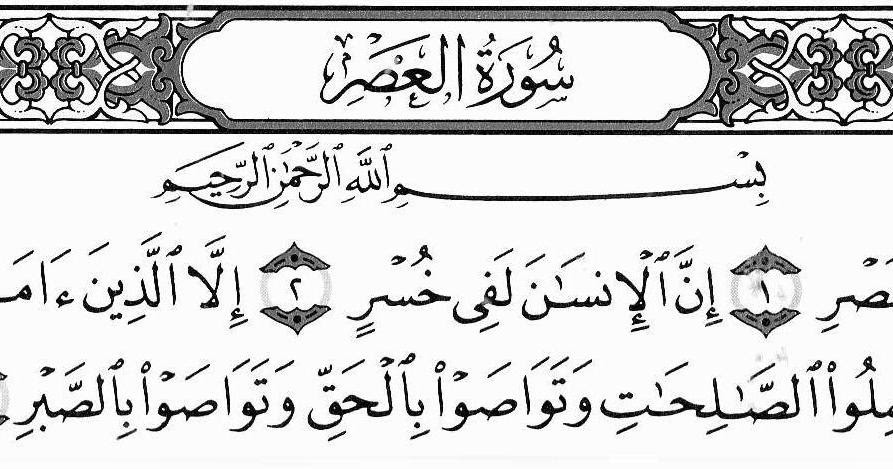 سُورَةُ العَصْرِ
بِسْمِ ٱللَّهِ ٱلرَّحْمَٰنِ ٱلرَّحِيمِ
١ إِنَّ ٱلْإِنسَٰنَ لَفِى خُسْرٍ ٢ إِلَّا ٱلَّذِينَ
ٱلصَّٰلِحَٰتِ وَتَوَاصَوْا۟ بِٱلْحَقِّ وَتَوَاصَوْا۟ بِٱلصَّبْرِ